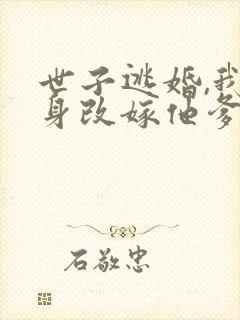 世子逃婚,我
身改嫁他爹
石敬忠